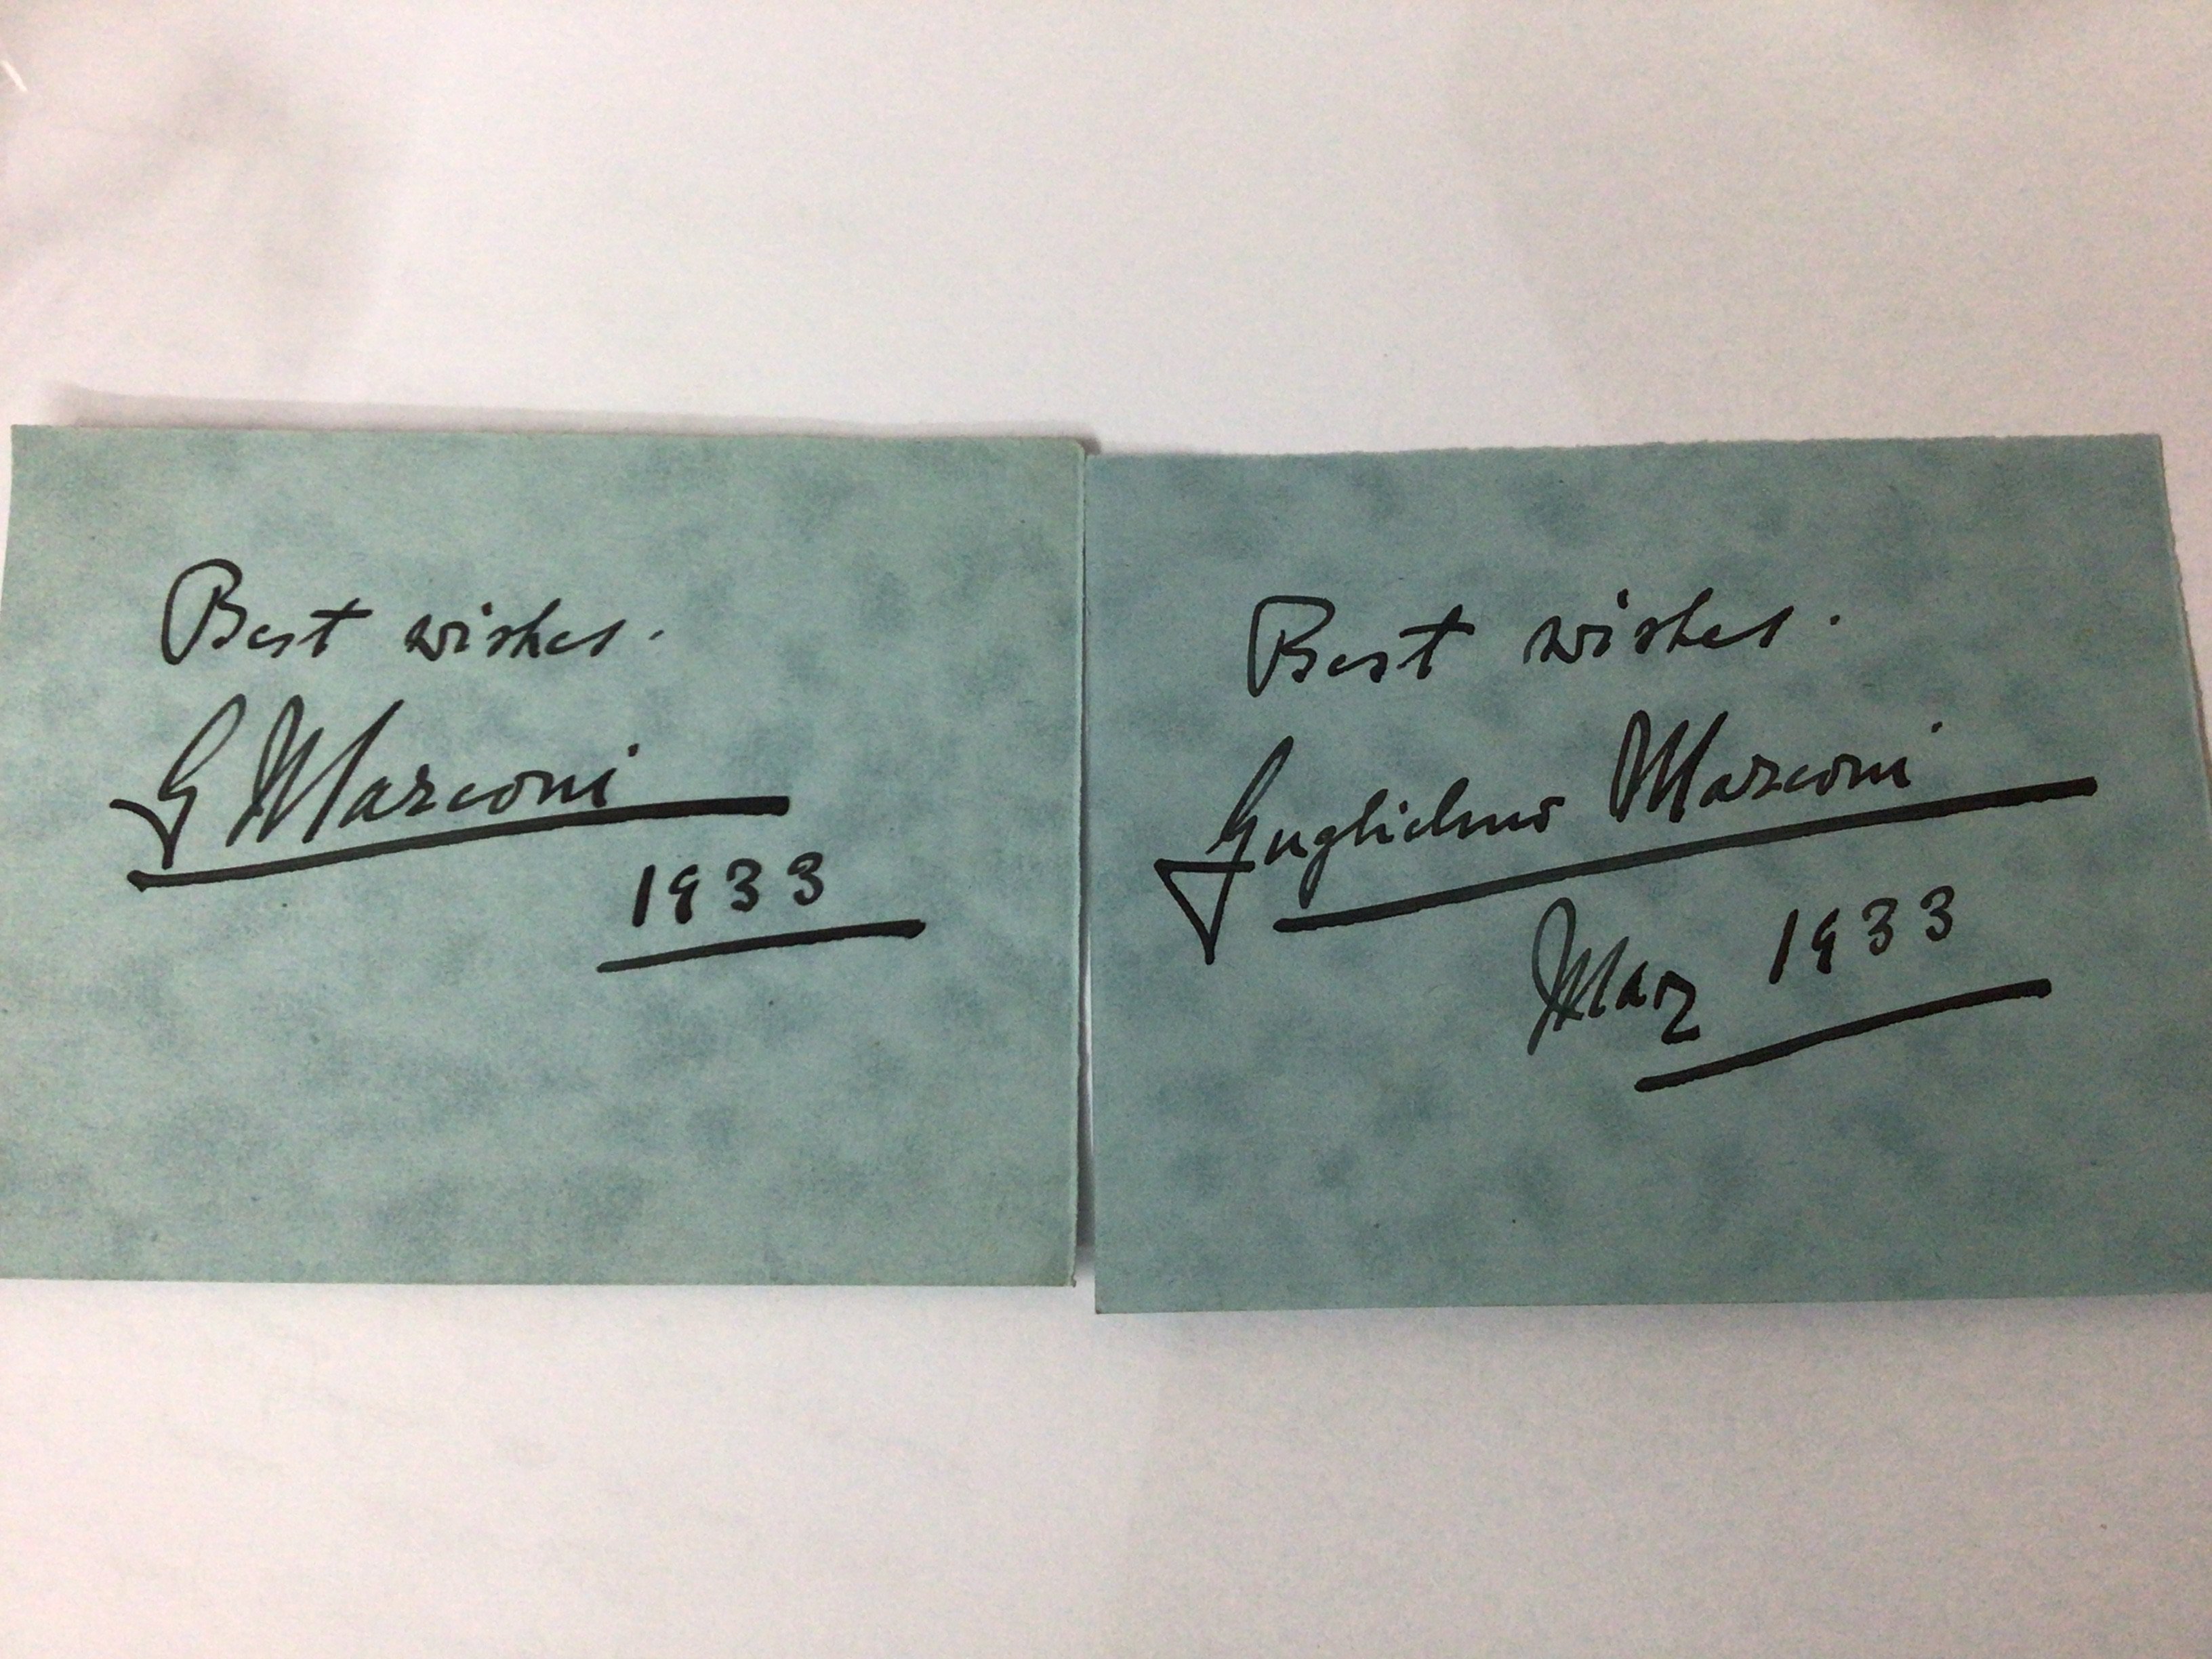 Best wishes.
G Marconi
1933
Best wishes.
Guglielmo Marconi
Mar 1933